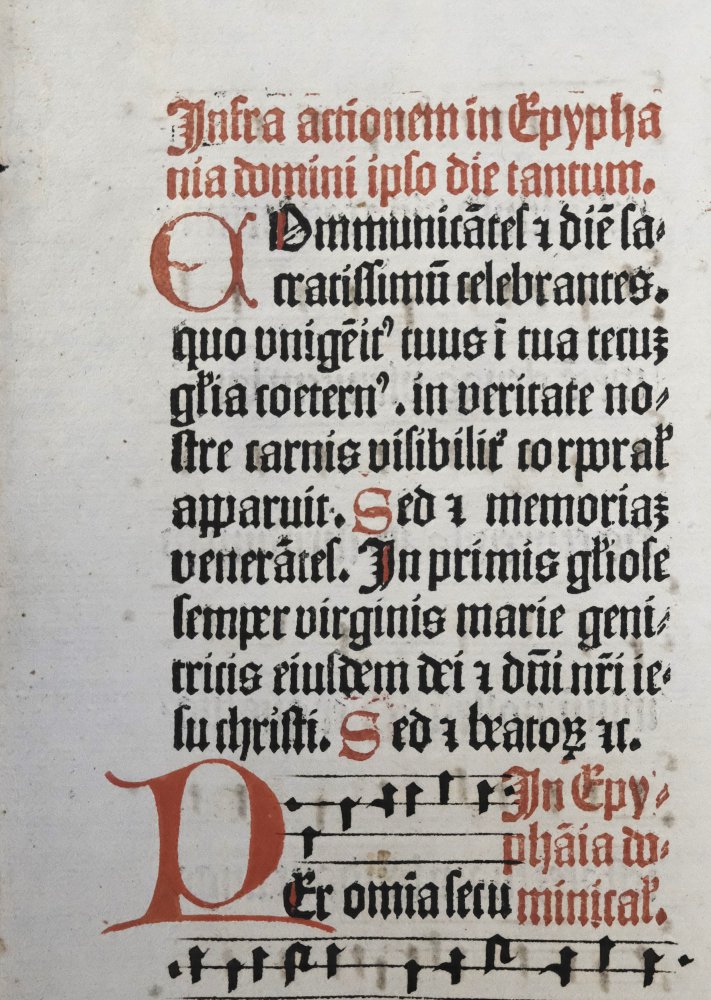 Infra actionem in Epypha
nia domini ipso die tantum.
COmmunicātes ⁊ diē sa⸗
cratissimū celebrantes.
quo vnigēitꝰ tuus ī tua tecuꝫ
gl'ia coeternꝰ. in veritate no⸗
stre carnis visibilit' corporal'
apparuit. Sed ⁊ memoriaꝫ
venerātes. In primis gl'iose
semper virginis marie geni⸗
tricis eiusdem dei ⁊ dn̄i nr̄i ie⸗
su christi. Sed ⁊ beatoꝝ ⁊c.
In Epy⸗
phāia do⸗
PEr om̄ia secu minical'.